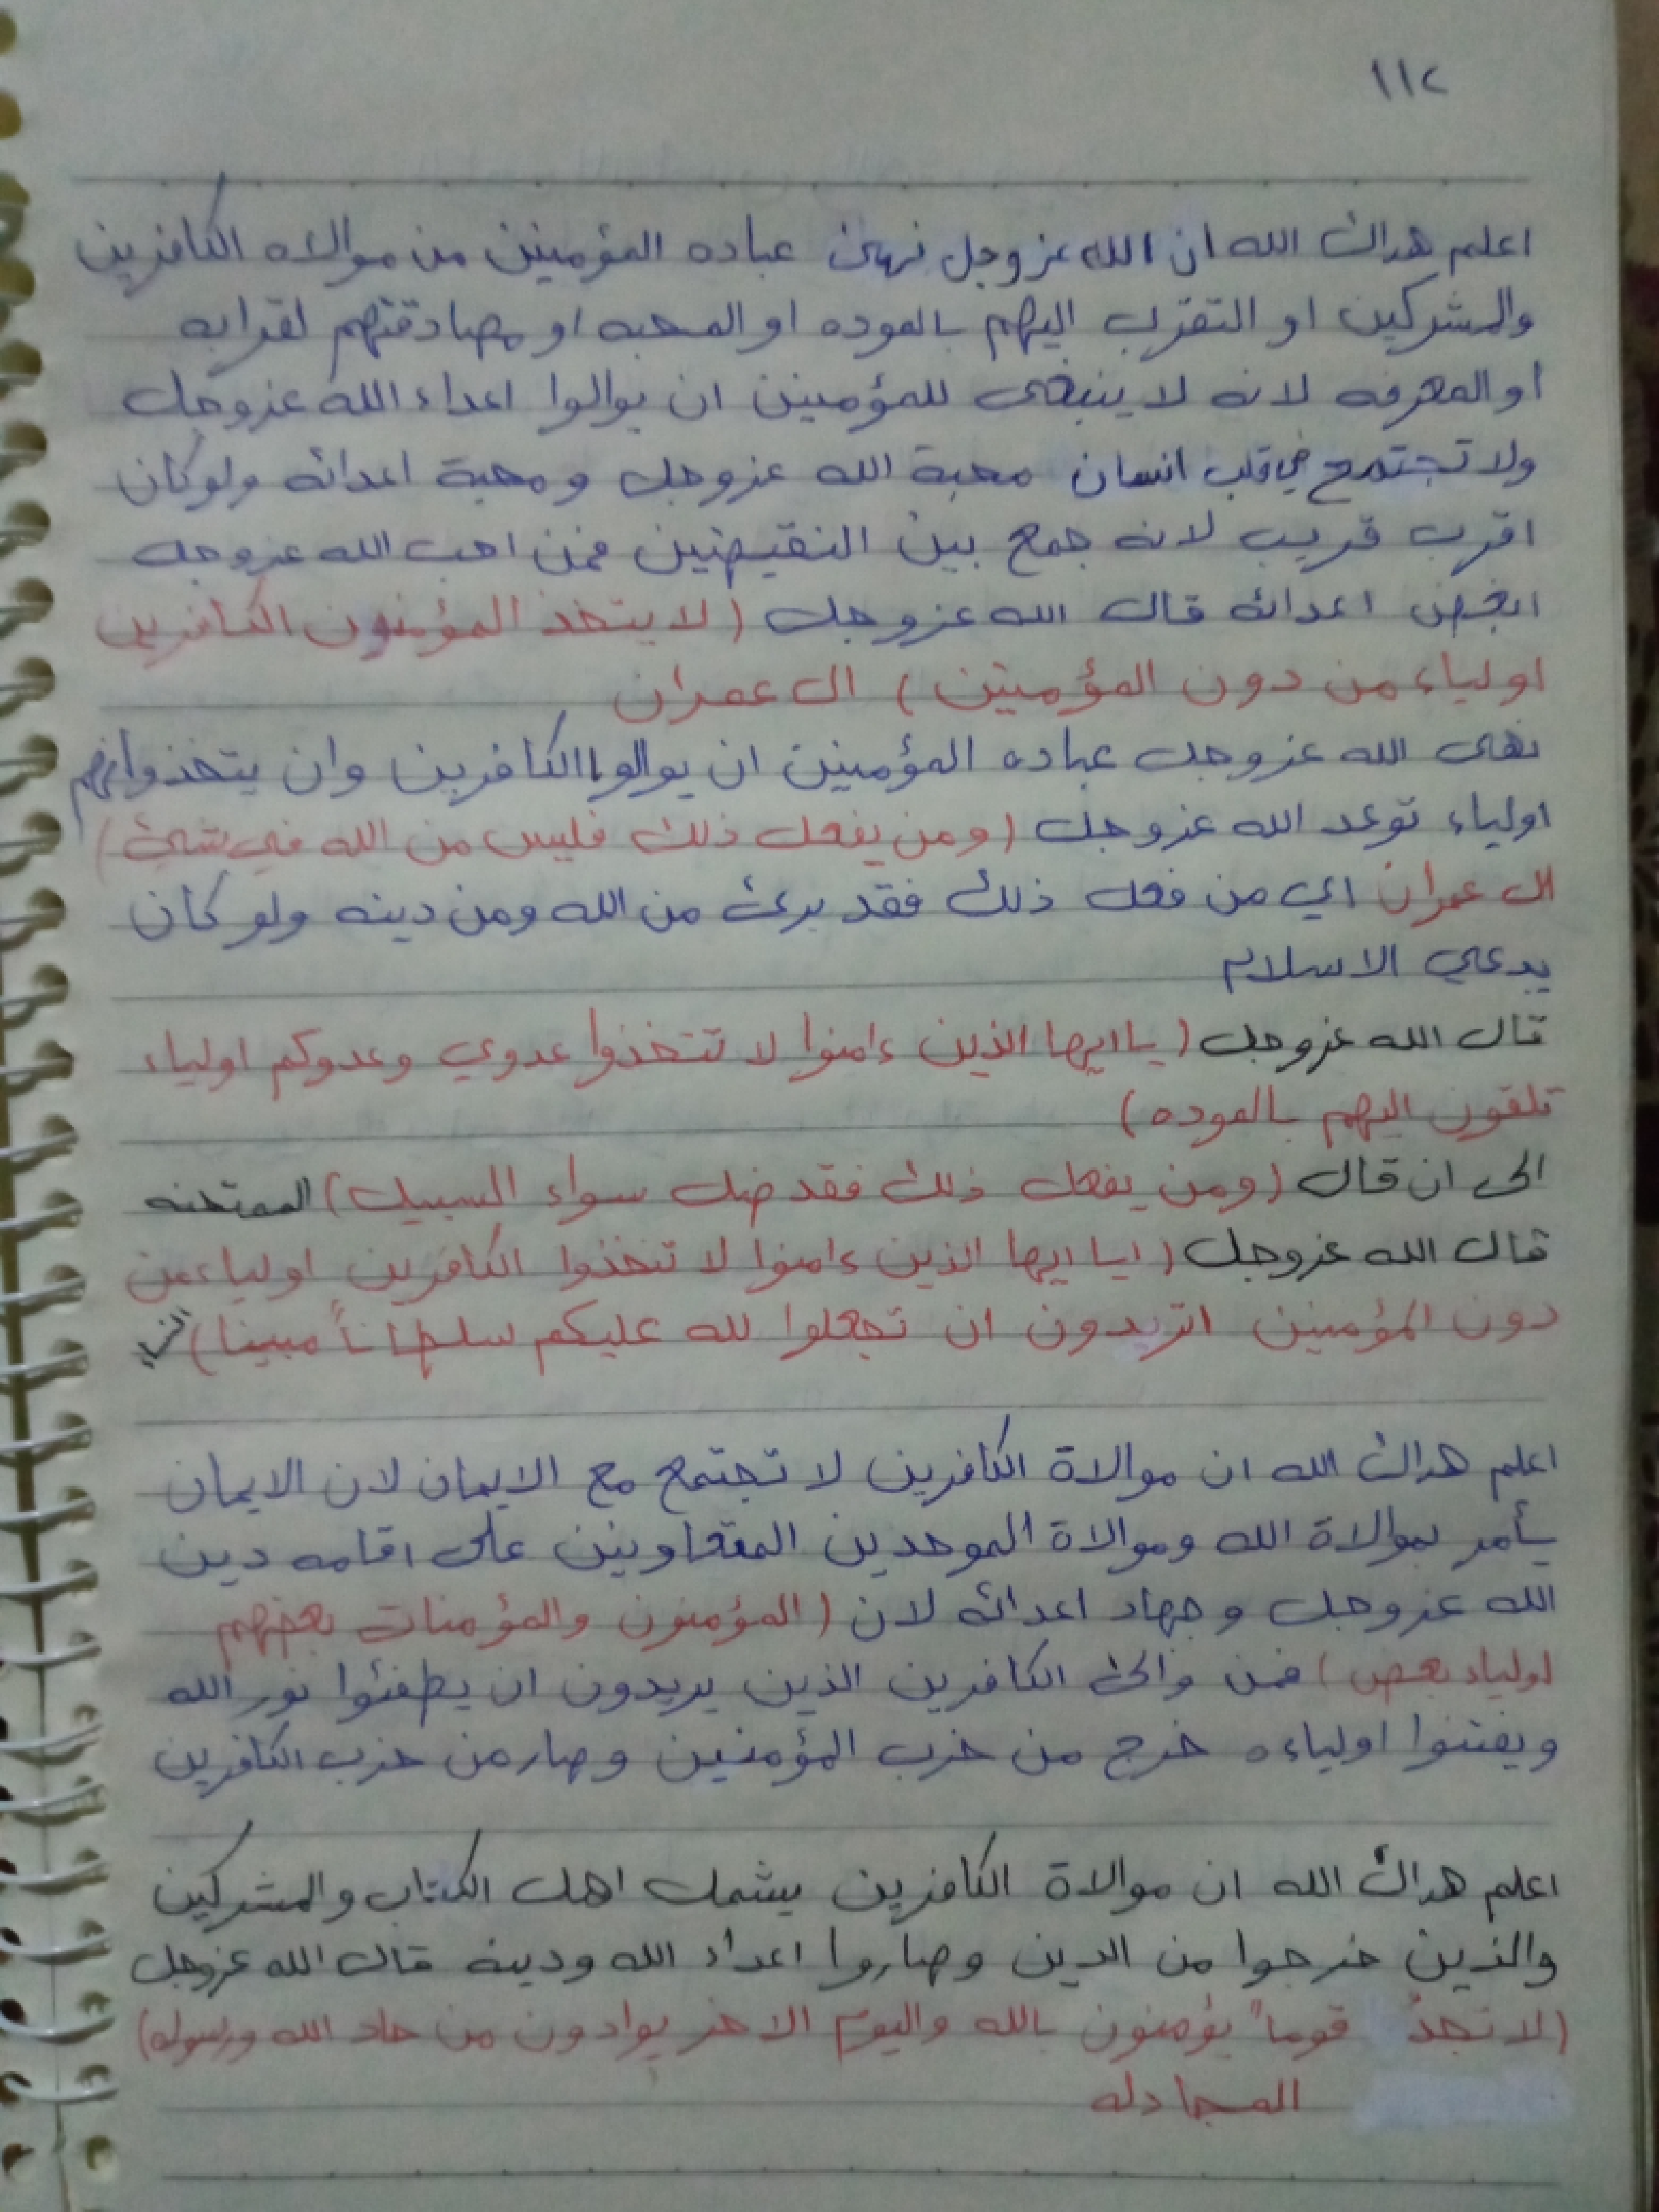 ١١٢
اعلم هداك الله ان الله عز وجل نهى عباده المؤمنين من موالاه الكافرين
والمشركين او التقرب اليهم بالموده او المحبه او مصادقتهم لقرابه
او المعرفه لانه لا ينبغي للمؤمنين ان يوالوا اعداء الله عز وجل
ولا تجتمع في قلب انسان محبة الله عز وجل ومحبة اعدائه ولو كان
اقرب قريب لانه جمع بين النقيضين فمن احب الله عز وجل
ابغض اعدائه قال الله عز وجل (لا يتخذ المؤمنون الكافرين
اولياء من دون المؤمنين) ال عمران
نهى الله عز وجل عباده المؤمنين ان يوالوا الكافرين وان يتخذوانهم
اولياء توعد الله عز وجل (ومن يفعل ذلك فليس من الله في شيئ)
ال عمران اي من فعل ذلك فقد برئ من الله ومن دينه ولو كان
يدعي الاسلام
قال الله عز وجل (يا ايها الذين ءامنوا لا تتخذوا عدوي وعدوكم اولياء
تلقون اليهم بالموده)
الى ان قال (ومن يفعل ذلك فقد ضل سواء السبيل) الممتحنه
قال الله عز وجل (ايا ايها الذين ءامنوا لا تتخذوا الكافرين اولياء من
دون المؤمنين اتريدون ان تجعلوا لله عليكم سلطاناً مبينا)
اعلم هداك الله ان موالاة الكافرين لا تجتمع مع الايمان لان الايمان
يأمر بموالاة الله وموالاة الموحدين المتعاونين على اقامه دين
الله عز وجل وجهاد اعدائه لان (المؤمنون والمؤمنات بعضهم
اولياء بعض) فمن والى الكافرين الذين يريدون ان يطفئوا نور الله
ويفتنوا اولياءه خرج من حزب المؤمنين وصار من حزب الكافرين
اعلم هداك الله ان موالاة الكافرين يشمل اهل الكتاب والمشركين
والذين خرجوا من الدين وصاروا اعداء الله ودينه قال الله عز وجل
(لا تجدُ قوماً يؤمنون بالله واليوم الاخر يوادون من حاد الله ورسوله)
المجادله